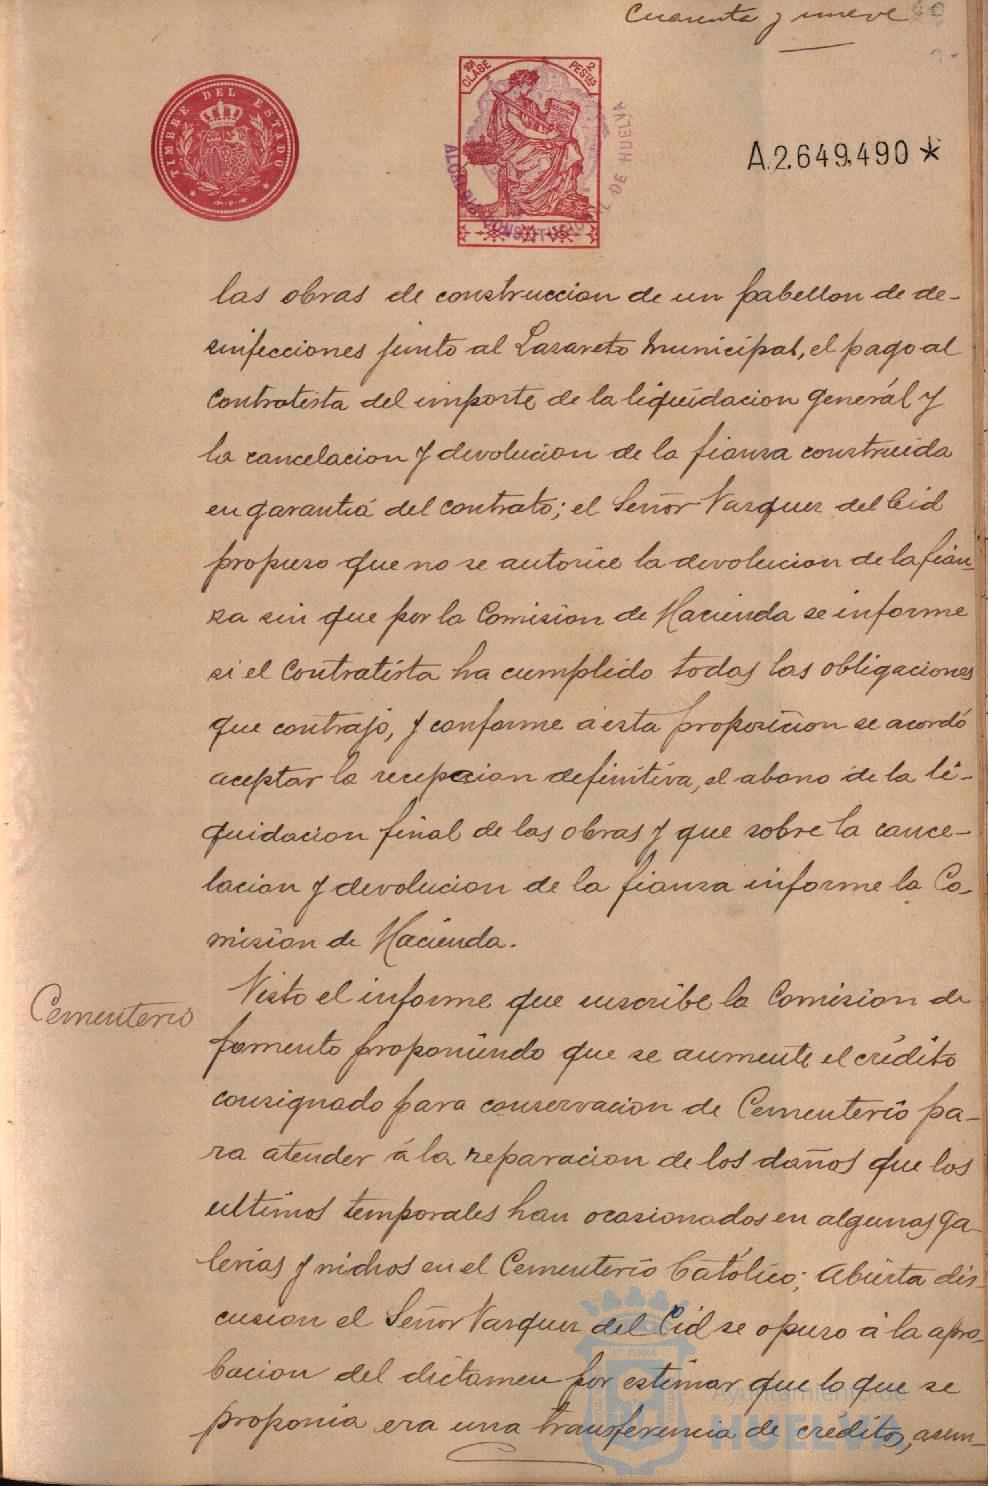 Cuarenta y nueve
TIMBRE DEL ESTADO
10ª CLASE
2 PESTAS
ALCALDIA CONSTITUCIONAL DE HUELVA
A.2.649.490 *
las obras de construccion de un pabellon de de-
sinfecciones junto al Lazareto Municipal, el pago al
contratista del importe de la liquidacion general y
la cancelacion y devolucion de la fianza construida
en garantia del contrato; el Señor Vazquez del Cid
propuso que no se autorice la devolucion de la fian-
za sin que por la Comision de Hacienda se informe
si el contratista ha cumplido todas las obligaciones
que contrajo, y conforme á esta proposicion se acordó
aceptar la recepcion definitiva, el abono de la li-
quidacion final de las obras y que sobre la cance-
lacion y devolucion de la fianza informe la Co-
mision de Hacienda.
Cementerio
Visto el informe que suscribe la Comision de
fomento proponiendo que se aumente el crédito
consignado para conservacion de Cementerio pa-
ra atender á la reparacion de los daños que los
ultimos temporales han ocasionados en algunas ga-
lerias y nichos en el Cementerio Católico; Abierta dis-
cusion el Señor Vazquez del Cid se opuso á la apro-
bacion del dictamen por estimar que lo que se
proponia era una transferencia de credito, asun-
Ayuntamiento de
HUELVA